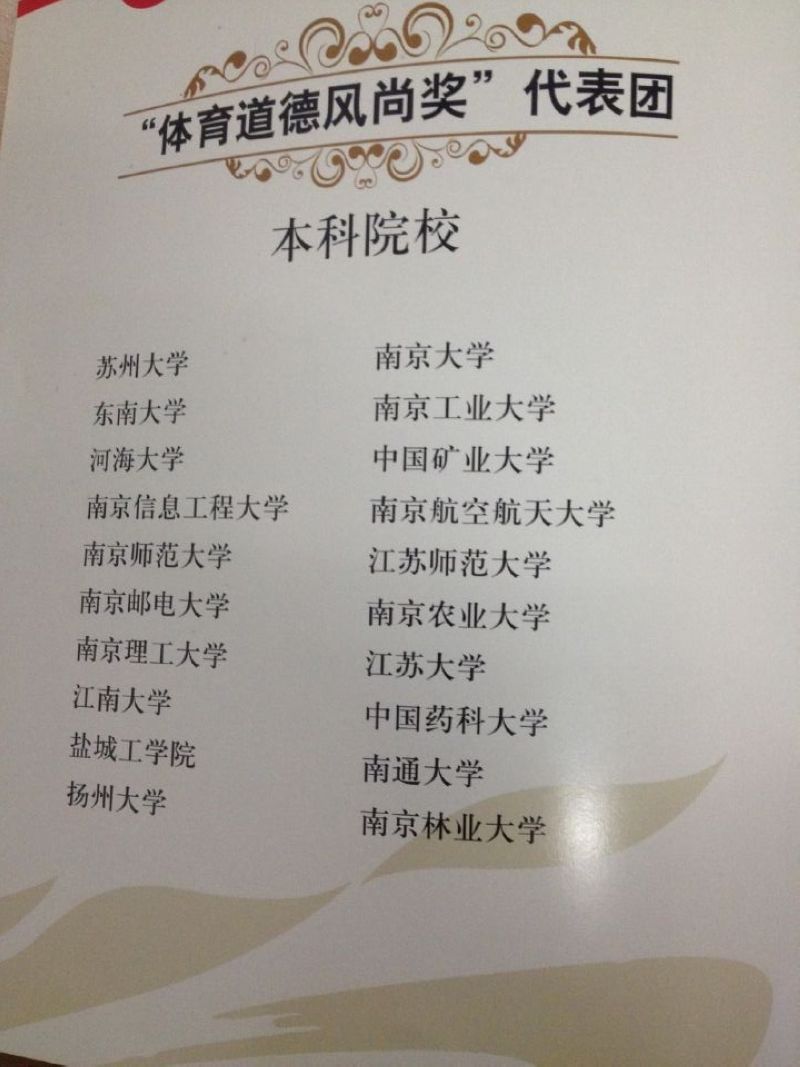 “体育道德风尚奖”代表团
本科院校
苏州大学 南京大学
东南大学 南京工业大学
河海大学 中国矿业大学
南京信息工程大学 南京航空航天大学
南京师范大学 江苏师范大学
南京邮电大学 南京农业大学
南京理工大学 江苏大学
江南大学 中国药科大学
盐城工学院 南通大学
扬州大学 南京林业大学